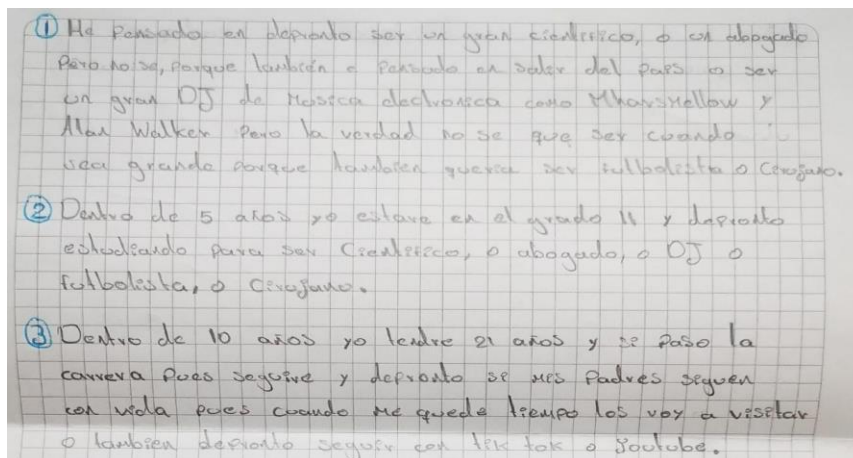 ① He pensado en depronto ser un gran cientifico, o un abogado
Pero no se, porque tambien e pensado en salir del pais o ser
un gran DJ de Musica electronica como Mharsmellow y
Alan Walker Pero la verdad no se que ser cuando
sea grande porque tambien queria ser fulbolista o Cerojano.
② Dentro de 5 años yo estare en el grado 11 y depronto
estodeando para ser Cientefeco, o abogado, o DJ o
futbolesta, o Cerojano.
③ Dentro de 10 años yo tendre 21 años y se paso la
carrera pues seguire y depronto se mes Padres seguen
con vida pues cuando me quede tiempo los voy a vesetar
o tambien depronto seguir con tik tok o Youtube.